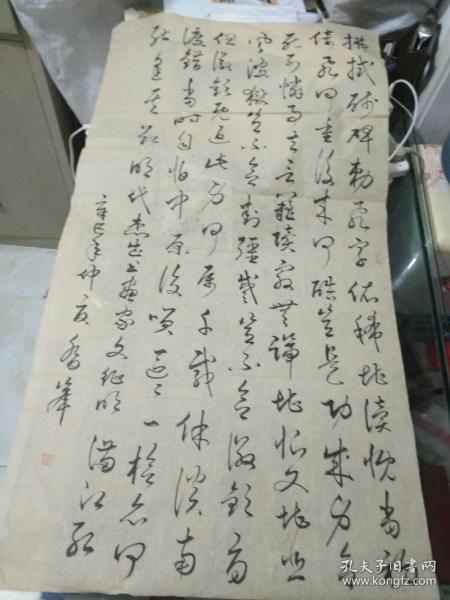 拂拭残碑勅飞字依稀堪读慨当初
倚飞何重后来何酷岂是功成身合
死可怜事去言难赎最无辜堪恨又堪悲
风波狱岂不念封疆蹙岂不念徽钦辱
但徽钦既返此身何属千载休谈南
渡错当时自怕中原复笑区区一桧亦何
能逢其欲明代杰出书画家文征明满江红
辛巳年仲夏峰
孔夫子旧书网
www.kongfz.com